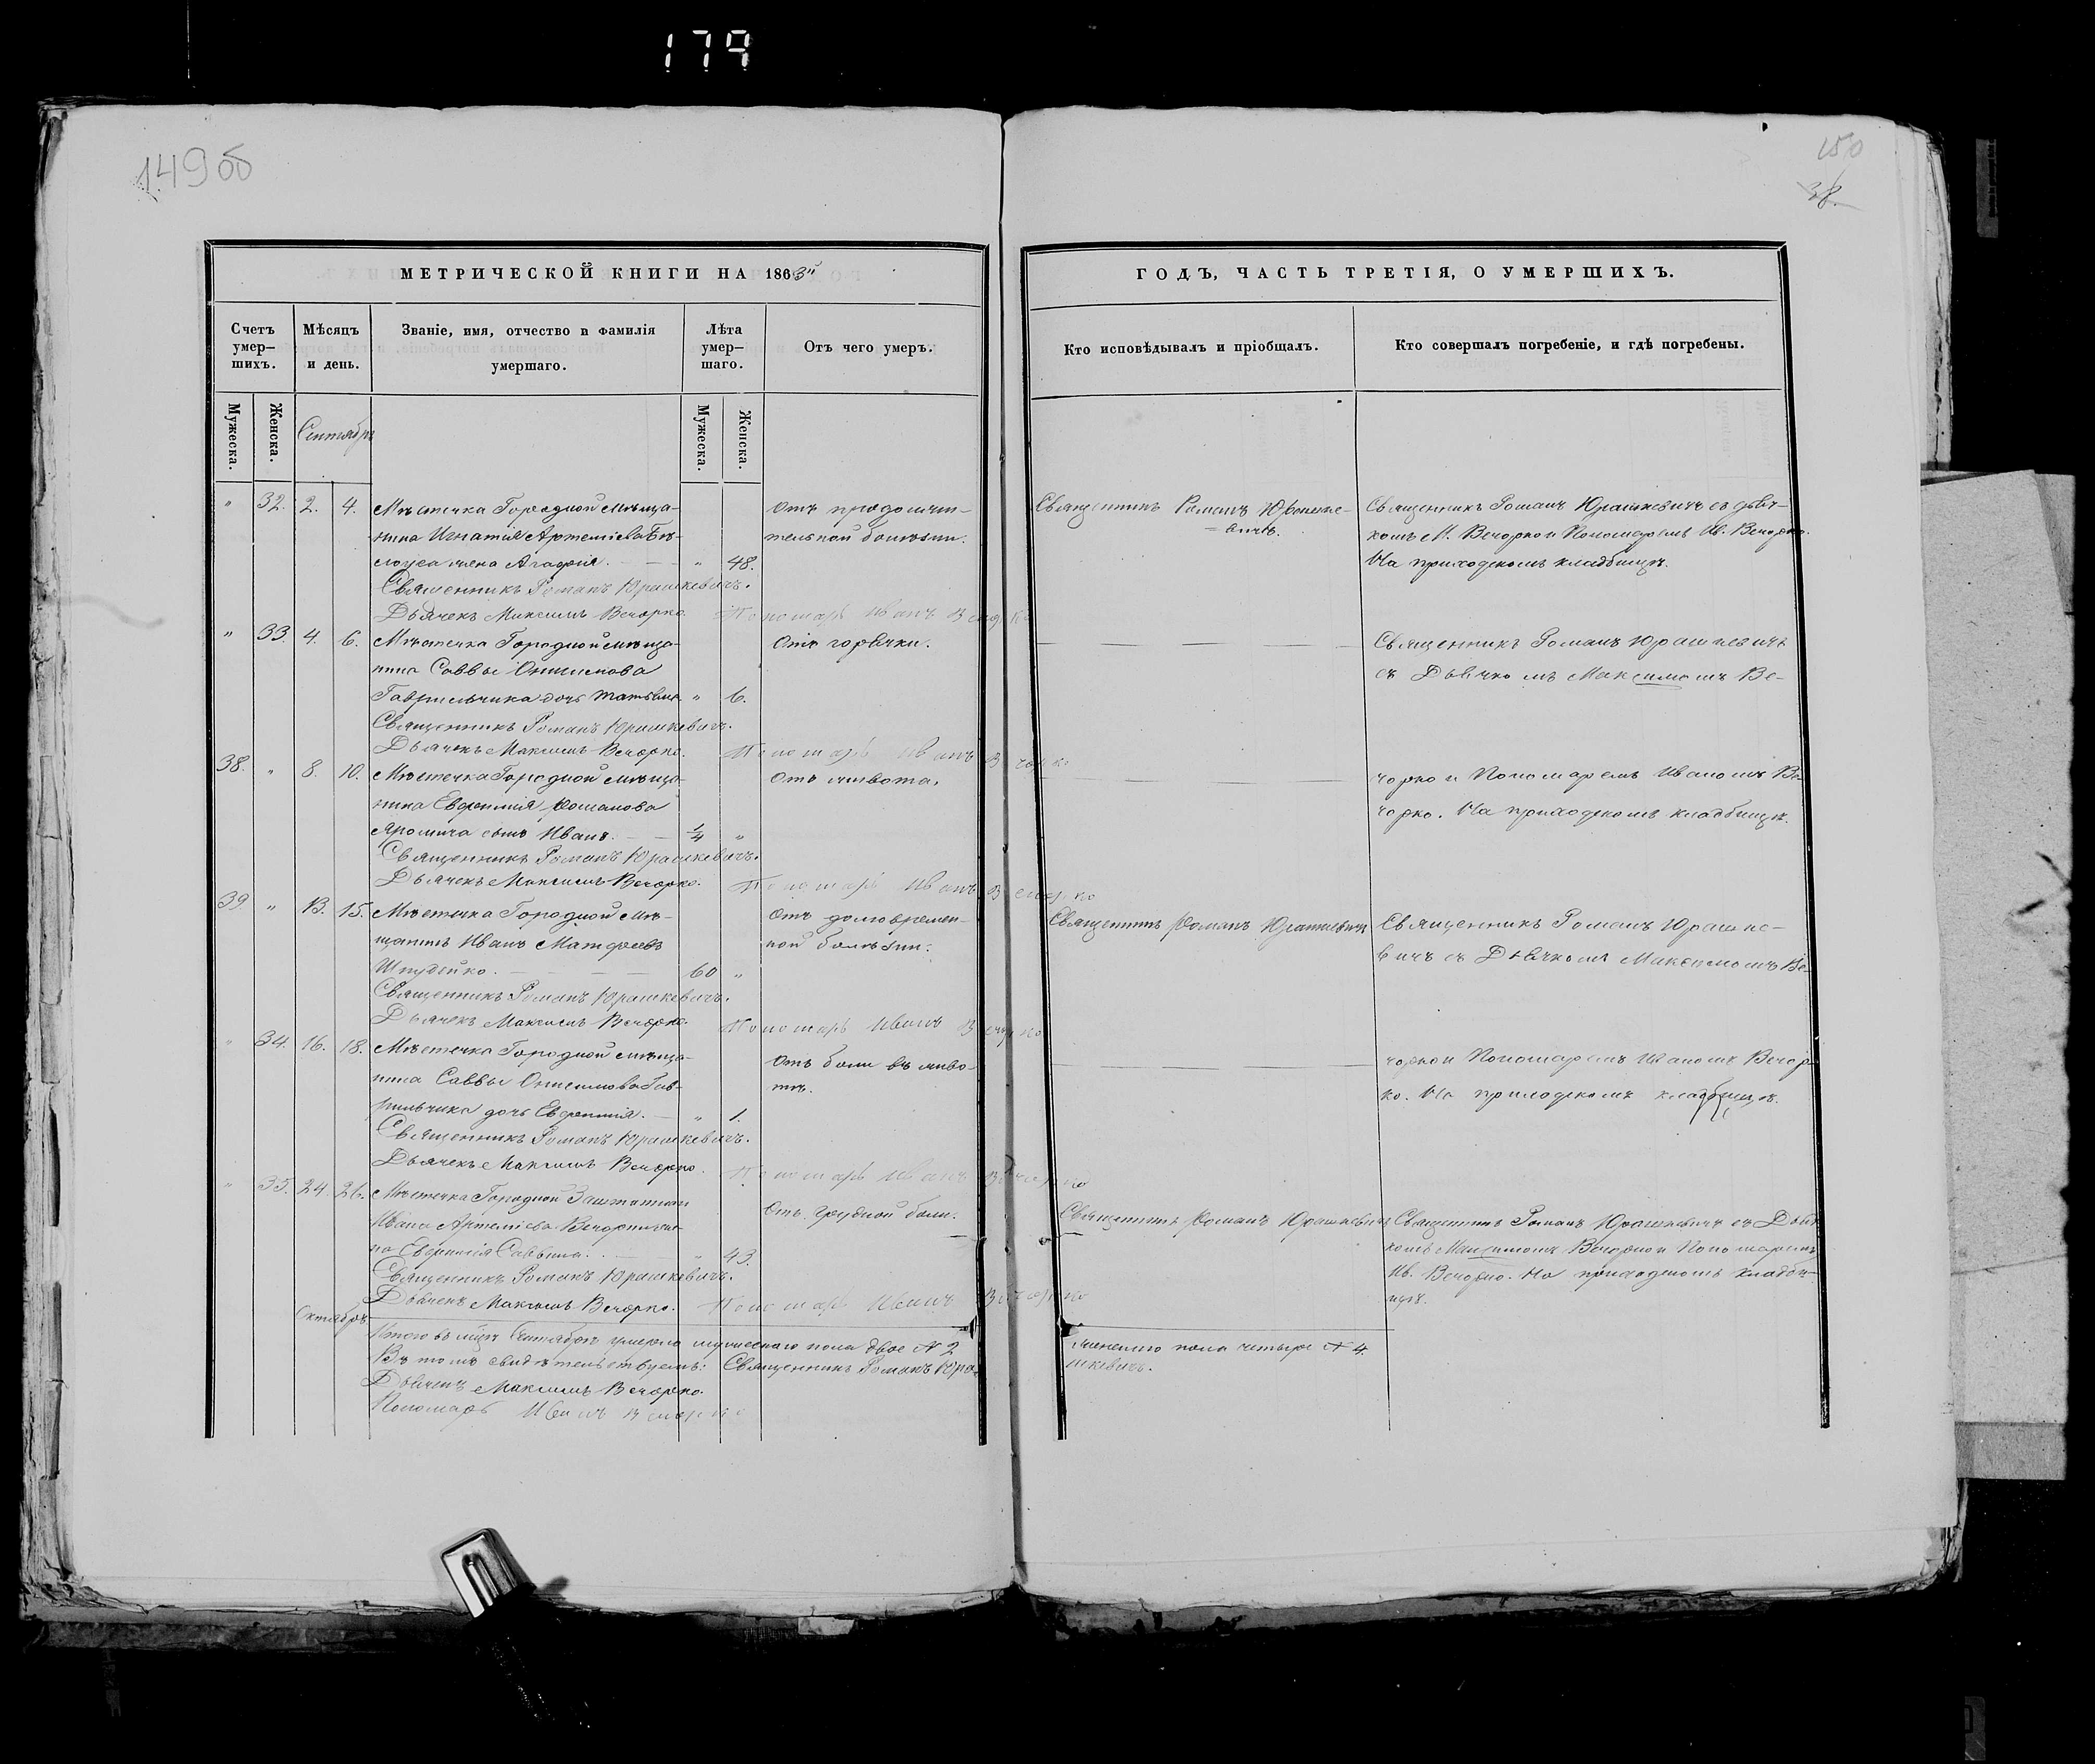 179
149 об
150
38.
МЕТРИЧЕСКОЙ КНИГИ НА 1863й
Счетъ умер-шихъ.
Мѣсяцъ и день.
Званіе, имя, отчество и фамилія умершаго.
Лѣта умер-шаго.
Отъ чего умеръ.
Мужеска.
Женска.
Сентябрь
Мужеска.
Женска.
" 32. 2. 4. Мѣстечка Городной мѣща-
нина Игнатія Артеміева Бѣ-
лоуса жена Агафія. — — " 48.
Отъ продолжи-
тельной болѣзни.
Священникъ Романъ Юрашкевичъ.
Дьячекъ Максимъ Вечорко. Пономарь Иванъ Вечорко
" 33. 4. 6. Мѣстечка Городной мѣща-
нина Саввы Онисимова
Гаврильчика дочь Татьяна " 6.
Отъ горячки.
Священникъ Романъ Юрашкевичъ.
Дьячекъ Максимъ Вечорко. Пономарь Иванъ Вечорко
38. " 8. 10. Мѣстечка Городной мѣща-
нина Евфимія Романова
сынъ Иванъ. — 1/4 "
Отъ живота.
Священникъ Романъ Юрашкевичъ.
Дьячекъ Максимъ Вечорко. Пономарь Иванъ Вечорко
39 " 13. 15. Мѣстечка Городной мѣ-
щанинъ Иванъ Матфеевъ
Шпудейко. — — — 60 "
Отъ долговремен-
ной болѣзни.
Священникъ Романъ Юрашкевичъ.
Дьячекъ Максимъ Вечорко. Пономарь Иванъ Вечорко
" 34. 16. 18. Мѣстечка Городной мѣща-
нина Саввы Онисимова Гав-
рильчика дочь Евфимія. — " 1.
Отъ боли въ живо-
тѣ.
Священникъ Романъ Юрашкевичъ.
Дьячекъ Максимъ Вечорко. Пономарь Иванъ Вечорко
" 35. 24. 26. Мѣстечка Городной
Ивана Артеміева
Евфимія Саввина. — " 43.
Отъ грудной боли.
Священникъ Романъ Юрашкевичъ.
Дьячекъ Максимъ Вечорко. Пономарь Иванъ Вечорко
Октябрь
Итого въ мцѣ Сентябрѣ умерло мужескаго пола двое № 2
Въ томъ свидѣтельствуемъ: Священникъ Романъ Юра-
Дьячекъ Максимъ Вечорко.
Пономарь Иванъ Вечорко
ГОДЪ, ЧАСТЬ ТРЕТІЯ, О УМЕРШИХЪ.
Кто исповѣдывалъ и пріобщалъ.
Кто совершалъ погребеніе, и гдѣ погребены.
Священникъ Романъ Юрашке-
=вичъ.
Священникъ Романъ Юрашкевичъ съ дьяч-
комъ М. Вечорко и Пономаремъ Ив. Вечорко.
На приходскомъ кладбищѣ.
Священникъ Романъ Юрашкевичъ
съ Дьячкомъ Максимомъ Ве-
чорко и Пономаремъ Иваномъ Ве-
чорко. На приходскомъ кладбищѣ.
Священникъ Романъ Юрашкевичъ
Священникъ Романъ Юрашке-
вичъ съ Дьячкомъ Максимомъ Ве-
чорко и Пономаремъ Иваномъ Вечор-
ко. На приходскомъ кладбищѣ.
Священникъ Романъ Юрашкевичъ
Священникъ Романъ Юрашкевичъ съ Дьяч-
комъ Максимомъ Вечорко и Пономаремъ
Ив. Вечорко. На приходскомъ кладби-
щѣ.
женскаго пола четыре № 4.
шкевичъ.